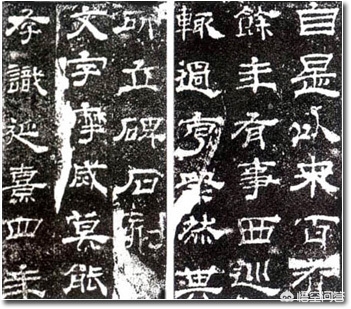 自是以來百有
餘年有事西巡
輒過享祭然其
所立碑石刻
文字摩滅莫能
存識延熹四年
悟空问答